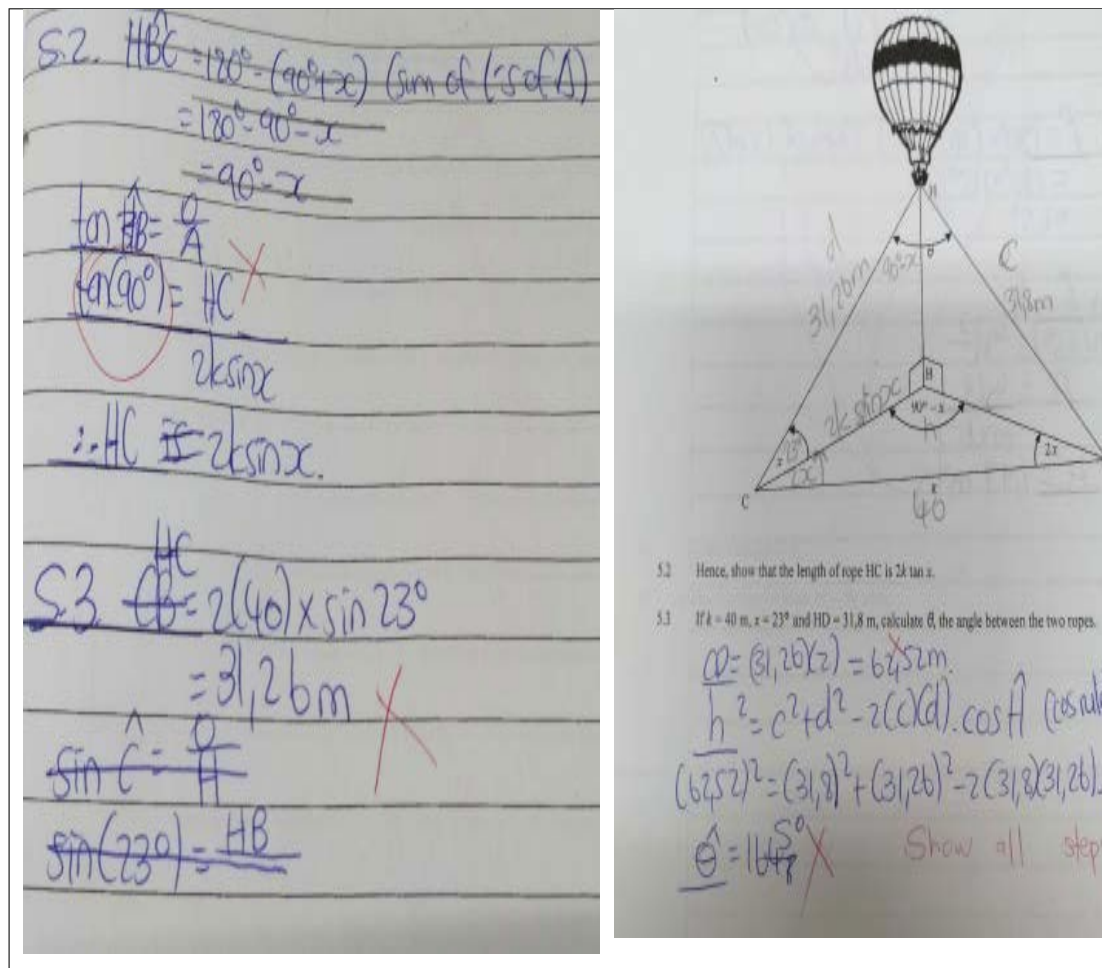 5.2. HB̂C = 180° - (90° + x) (sum of ∠'s of Δ)
= 180° - 90° - x
= 90° - x
tan B̂ = O/A
tan(90°) = HC
2k sin x
∴ HC = 2k sin x.
HC
5.3 CB = 2(40) × sin 23°
= 31,26m
sin Ĉ = O/H
sin(23°) = HB
H
d
90°-x
θ
C
31,26m
31,8m
B
2k sin x
90° - x
h
x
23°
2x
2x
C
k
40
5.2 Hence, show that the length of rope HC is 2k tan x.
5.3 If k = 40 m, x = 23° and HD = 31,8 m, calculate θ, the angle between the two ropes.
CD = (31,26)(2) = 62,52m.
h² = c² + d² - 2(c)(d).cos Ĥ (cos rule
(62,52)² = (31,8)² + (31,26)² - 2(31,8)(31,26).
θ̂ = 165°
Show all step